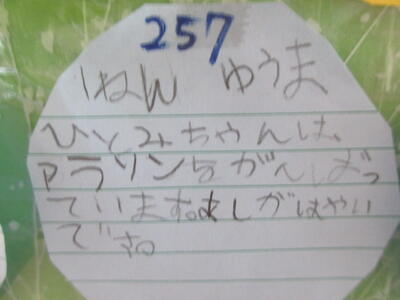 257
1ねん ゆうま
ひとみちゃんは、
マラソンをがんばっ
ています。あしがはやい
です。